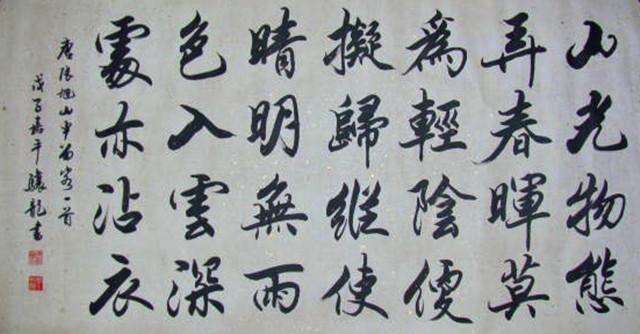 山光物態
弄春暉莫
爲輕陰便
擬歸縱使
晴明無雨
色入雲深
處亦沾衣
唐張旭山中留客一首
戊子嘉平龍書